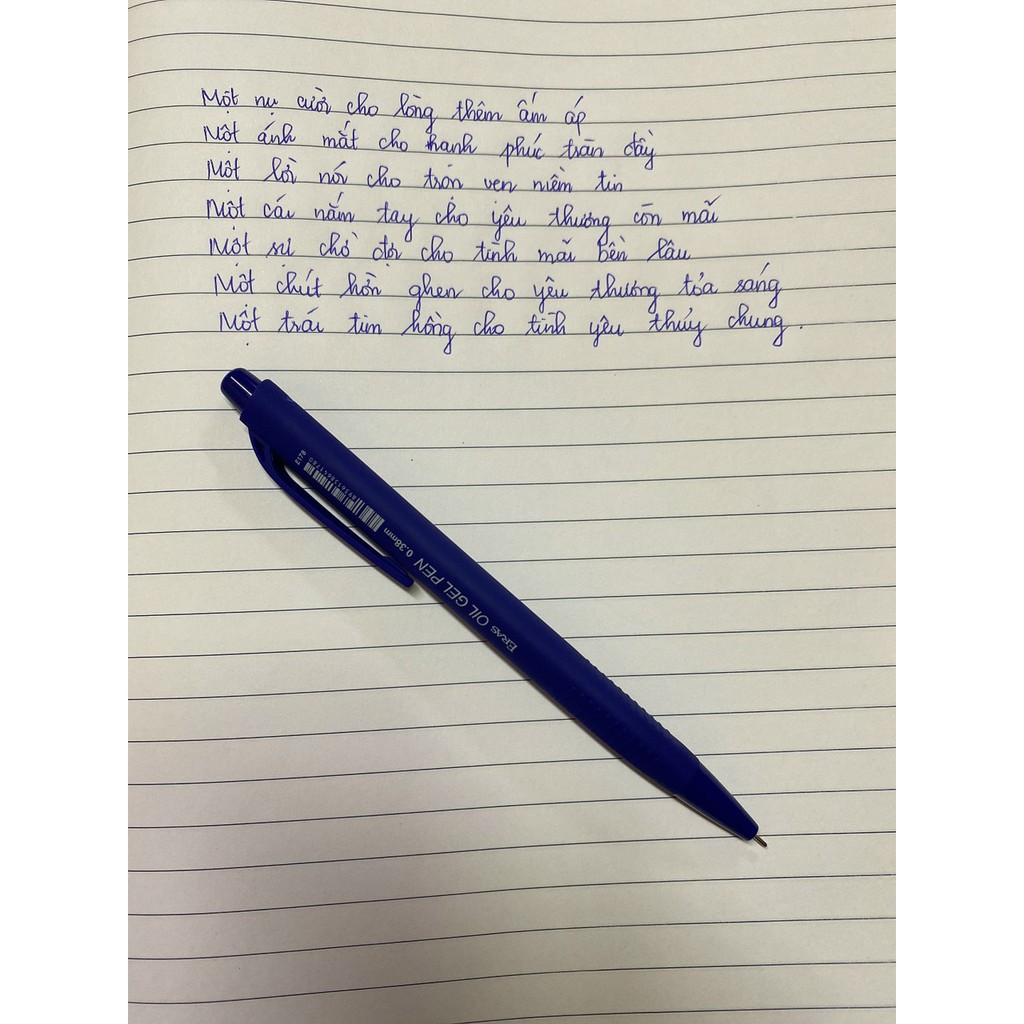 Một nụ cười cho lòng thêm ấm áp
Một ánh mắt cho hạnh phúc tràn đầy
Một lời nói cho trọn vẹn niềm tin
Một cái nắm tay cho yêu thương còn mãi
Một sự chờ đợi cho tình mãi bền lâu
Một chút hờn ghen cho yêu thương tỏa sáng
Một trái tim hồng cho tình yêu thủy chung.
E178
8936136641780
ERAS OIL GEL PEN 0.38mm